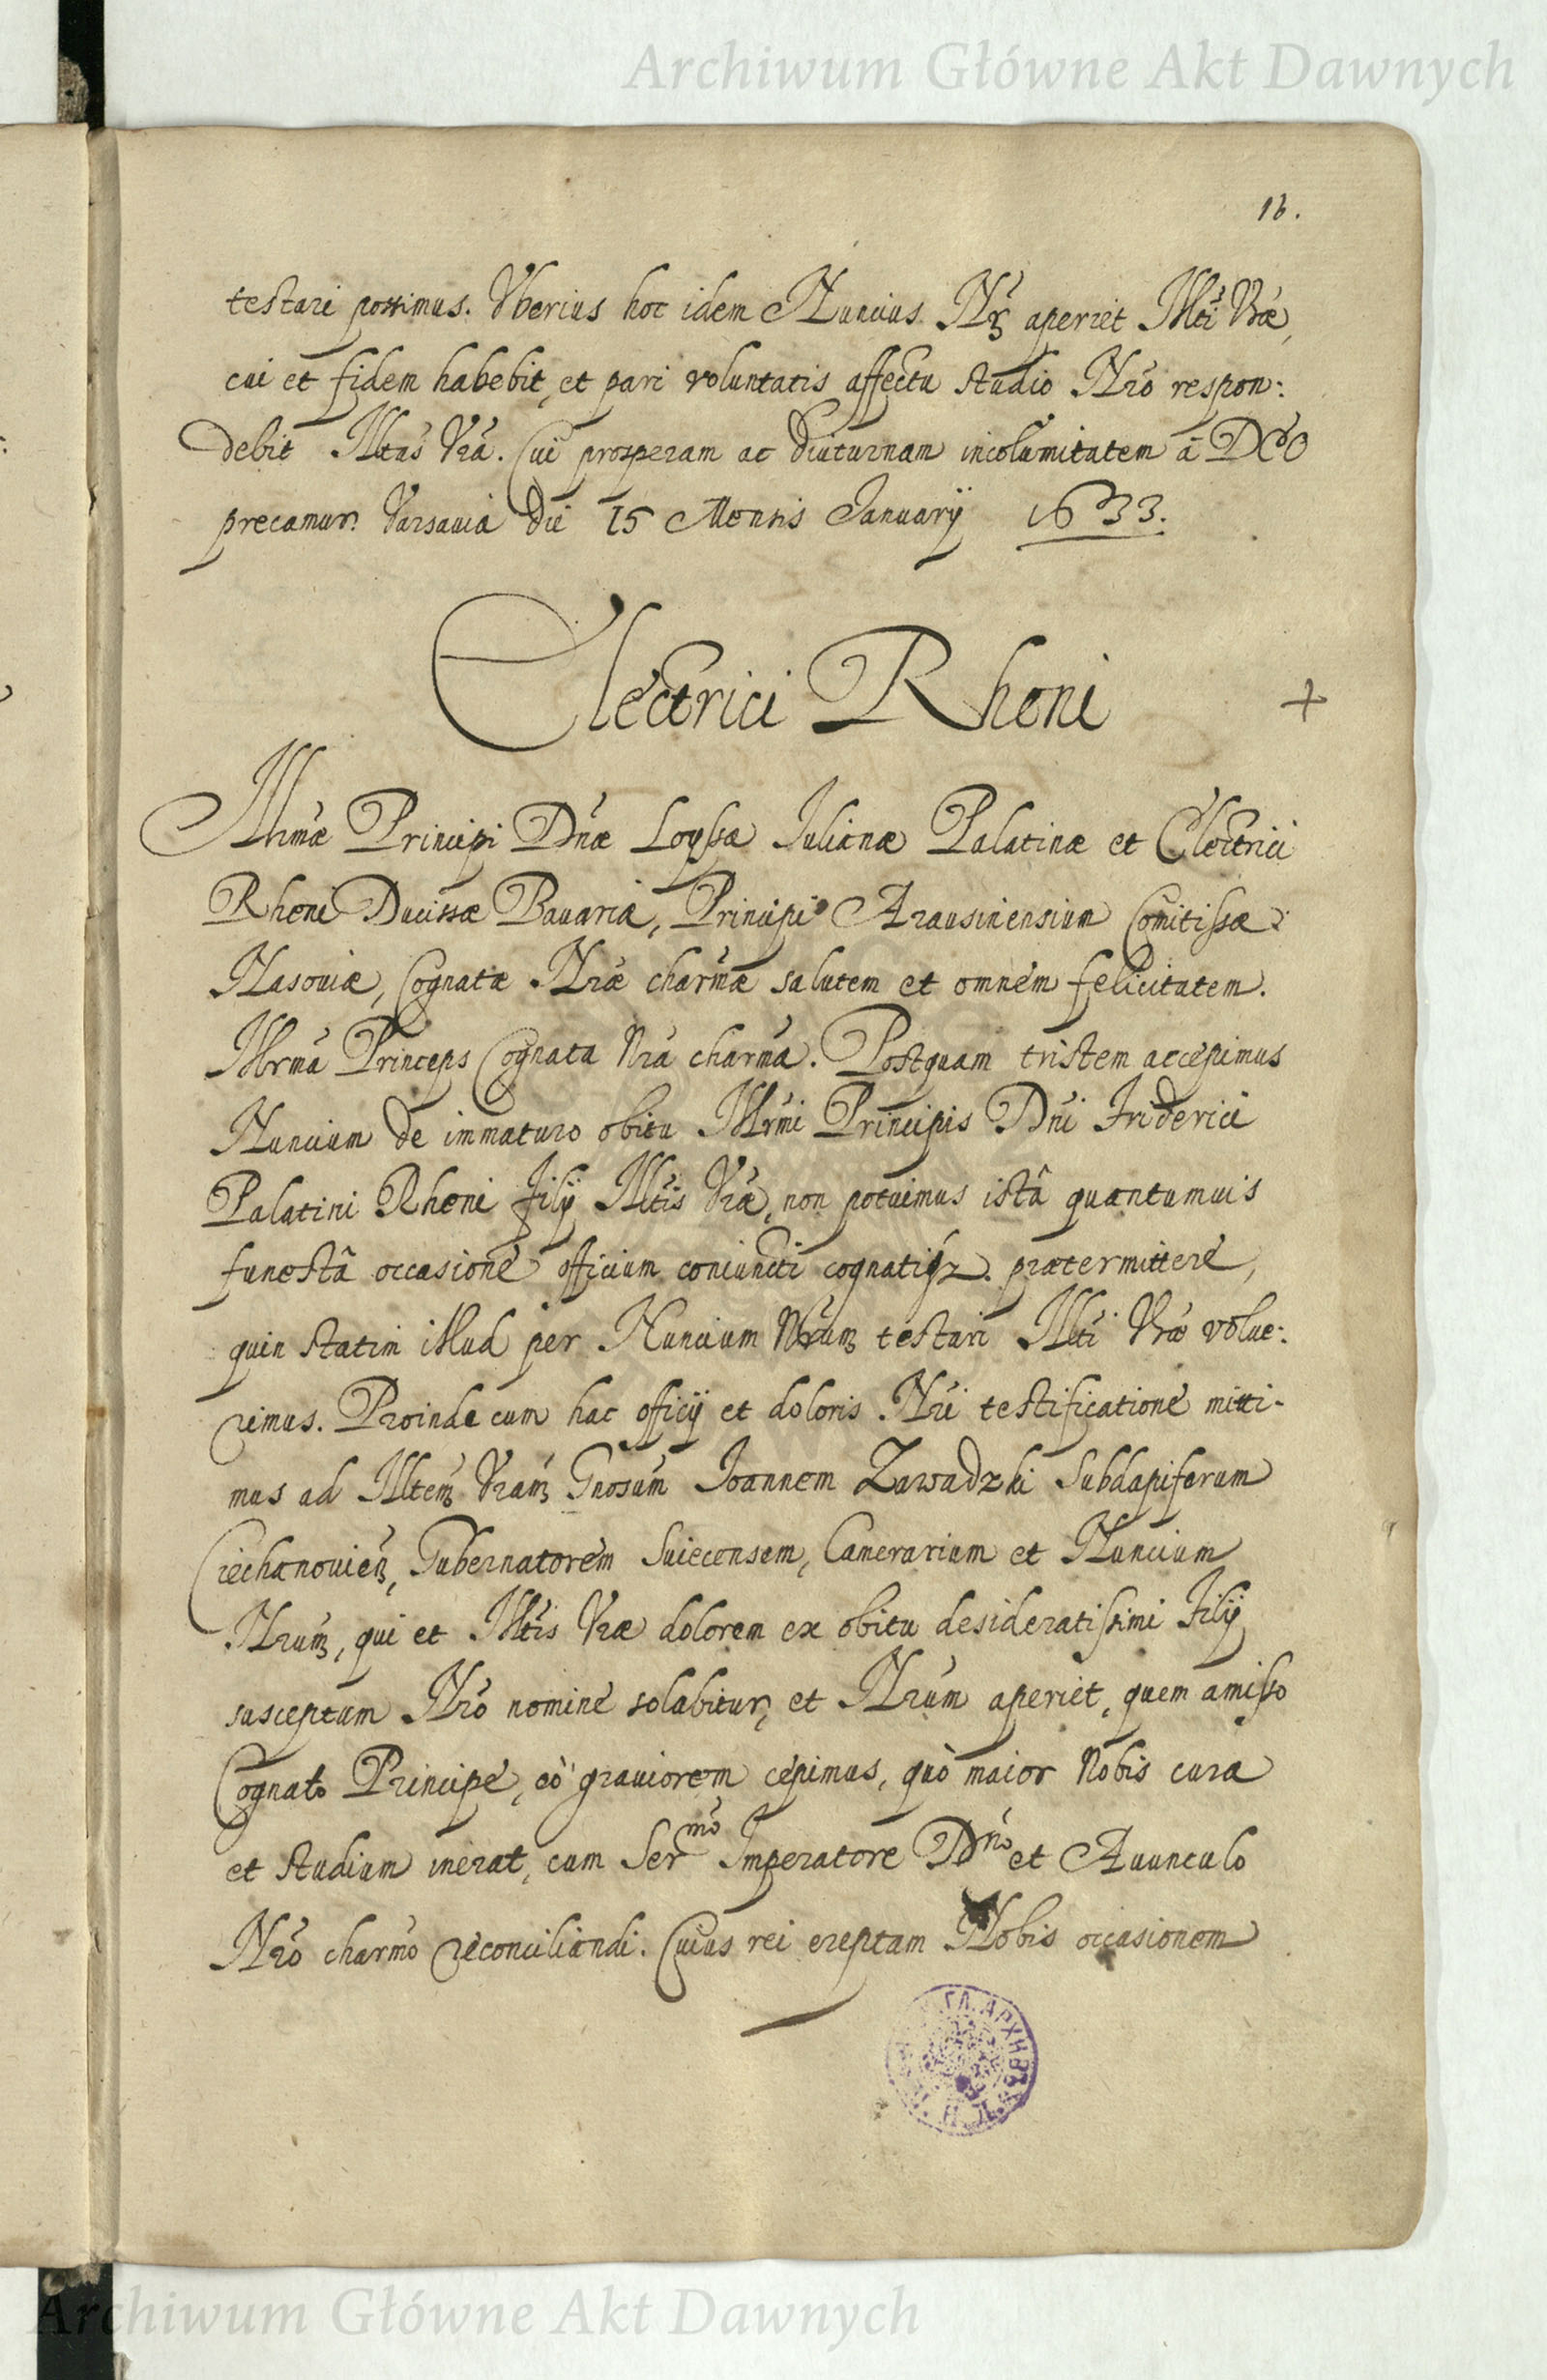 Archiwum Główne Akt Dawnych
16.
testari possimus. Vberius hoc idem Nuncius Nr̃ aperiet Illti Vræ,
cui et fidem habebit, et pari voluntatis affectu studio Nro respon:
debit Illtas Vra. Cui prosperam ac diuturnam incolumitatem à DEO
precamur. Varsauiæ die 15 Mensis Januarij 1633.
Electrici Rheni
+
Illrmæ Principi Dnæ Loysæ Iulianæ Palatinæ et Electrici
Rheni Ducissæ Bauariæ, Principi Arausinensium Comitissæ
Nasouiæ, Cognatæ Nræ charmæ salutem et omnem felicitatem.
Illrma Princeps Cognata Nra charma. Postquam tristem accepimus
Nuncium de immaturo obitu Illrmi Principis Dni Friderici
Palatini Rheni filij Illtis Vræ, non potuimus istâ quantumuis
funestâ occasione officium coniuncti cognatiq́z prætermittere,
quin statim illud per Nuncium Nrum testari Illti Vræ volue:
rimus. Proinde cum hac officij et doloris Nri testificatione mitti-
mus ad Illtem Vram Gnosum Joannem Zawadzki Subdapiferum
Ciechanouien, Gubernatorem Suiecensem, Camerarium et Nuncium
Nrum, qui et Illtis Vræ dolorem ex obitu desideratissimi Filij
susceptum Nro nomine solabitur, et Nrum aperiet, quem amisso
Cognato Principe, eò grauiorem cepimus, quò maior Nobis cura
et studium inerat, cum Sermo Imperatore Dno et Auunculo
Nro charmo reconciliandi. Cuius rei ereptam Nobis occasionem
Archiwum Główne Akt Dawnych